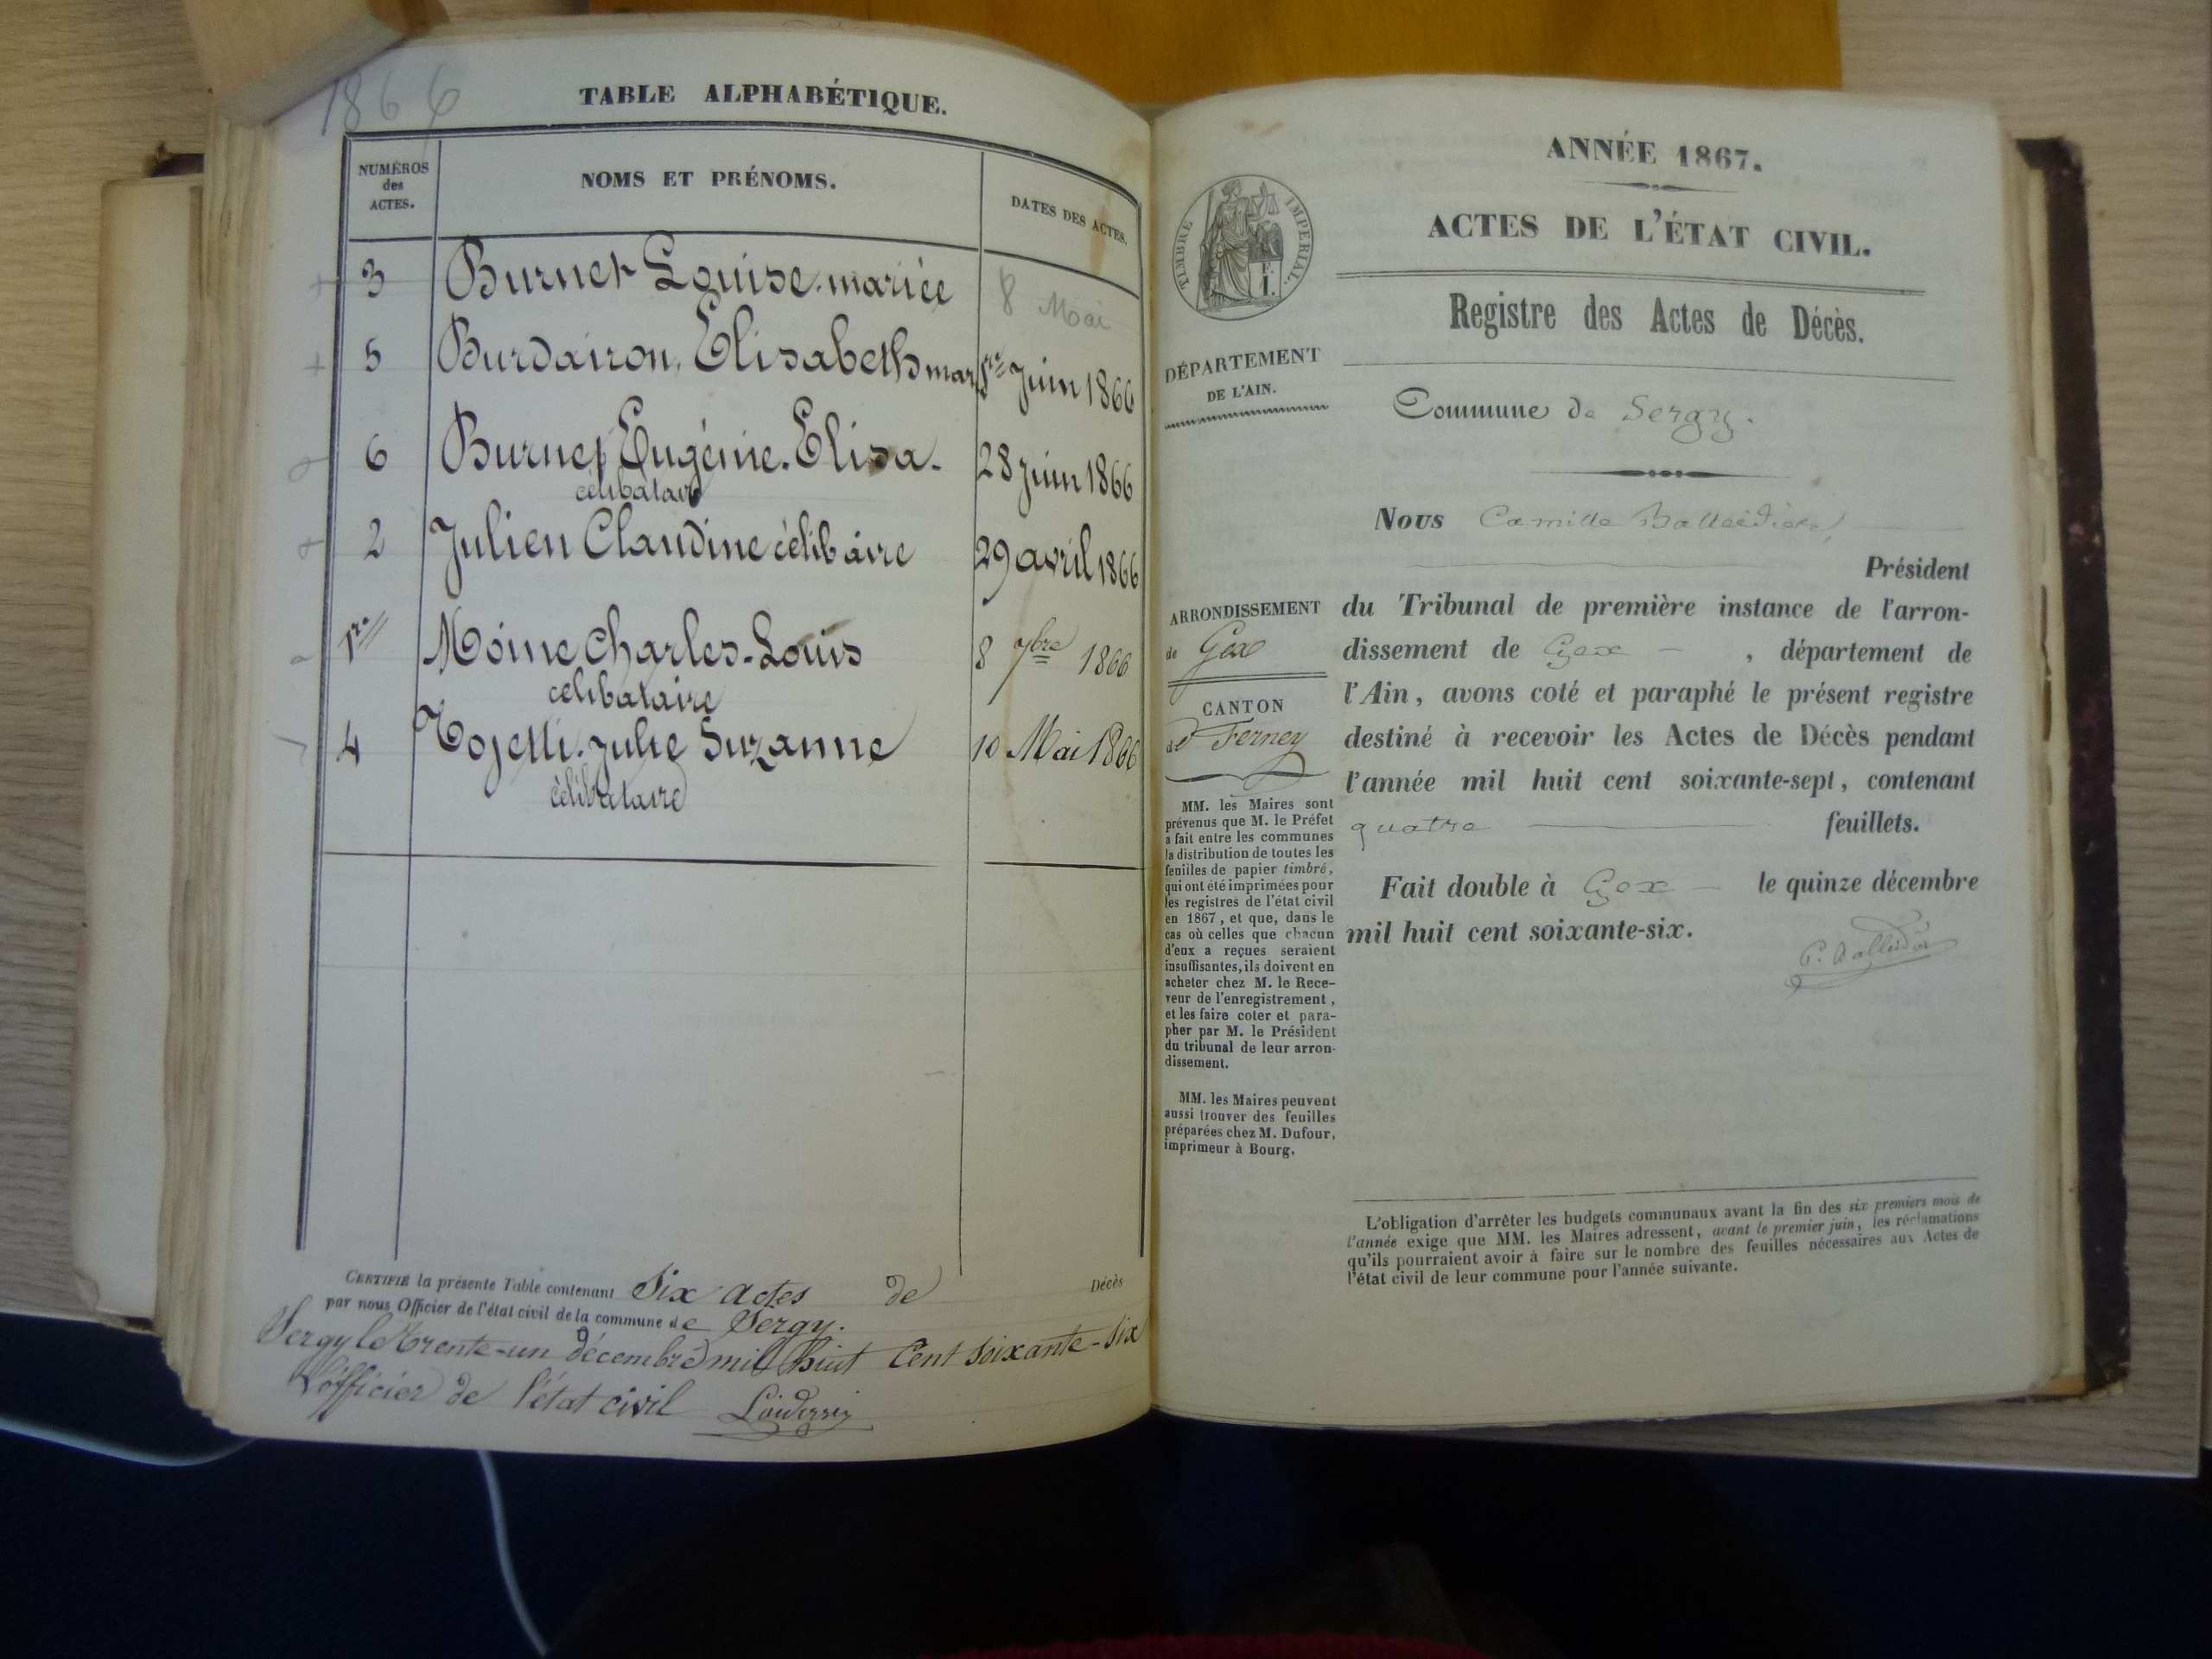 1866
TABLE ALPHABÉTIQUE.
NUMÉROS
des
ACTES.
NOMS ET PRÉNOMS.
DATES DES ACTES.
3 Burnet Louise mariée 8 Mai
5 Burdairon, Elisabeth mar 1er Juin 1866
6 Burnet Eugénie. Elisa. 28 Juin 1866
célibataire
2 Julien Claudine célibaire 29 avril 1866
1er Moine Charles-Louis 8 7bre 1866
célibataire
4 Tojetti. Julie Suzanne 10 Mai 1866
célibataire
CERTIFIÉ la présente Table contenant Six actes de Décès
par nous Officier de l'état civil de la commune de Sergy.
Sergy le trente-un décembre mil huit Cent soixante-six
L'officier de l'état civil
ANNÉE 1867.
ACTES DE L'ÉTAT CIVIL.
TIMBRE IMPERIAL.
Registre des Actes de Décès.
DÉPARTEMENT
DE L'AIN.
Commune de Sergy.
Nous Camille
Président
du Tribunal de première instance de l'arron-
dissement de Gex, département de
l'Ain, avons coté et paraphé le présent registre
destiné à recevoir les Actes de Décès pendant
l'année mil huit cent soixante-sept, contenant
quatre feuillets.
Fait double à Gex le quinze décembre
mil huit cent soixante-six.
ARRONDISSEMENT
de Gex
CANTON
de Ferney
MM. les Maires sont
prévenus que M. le Préfet
a fait entre les communes
la distribution de toutes les
feuilles de papier timbré,
qui ont été imprimées pour
les registres de l'état civil
en 1867, et que, dans le
cas où celles que chacun
d'eux a reçues seraient
insuffisantes, ils doivent en
acheter chez M. le Rece-
veur de l'enregistrement,
et les faire coter et para-
pher par M. le Président
du tribunal de leur arron-
dissement.
MM. les Maires peuvent
aussi trouver des feuilles
préparées chez M. Dufour,
imprimeur à Bourg.
L'obligation d'arrêter les budgets communaux avant la fin des six premiers mois de
l'année exige que MM. les Maires adressent, avant le premier juin, les réclamations
qu'ils pourraient avoir à faire sur le nombre des feuilles nécessaires aux Actes de
l'état civil de leur commune pour l'année suivante.